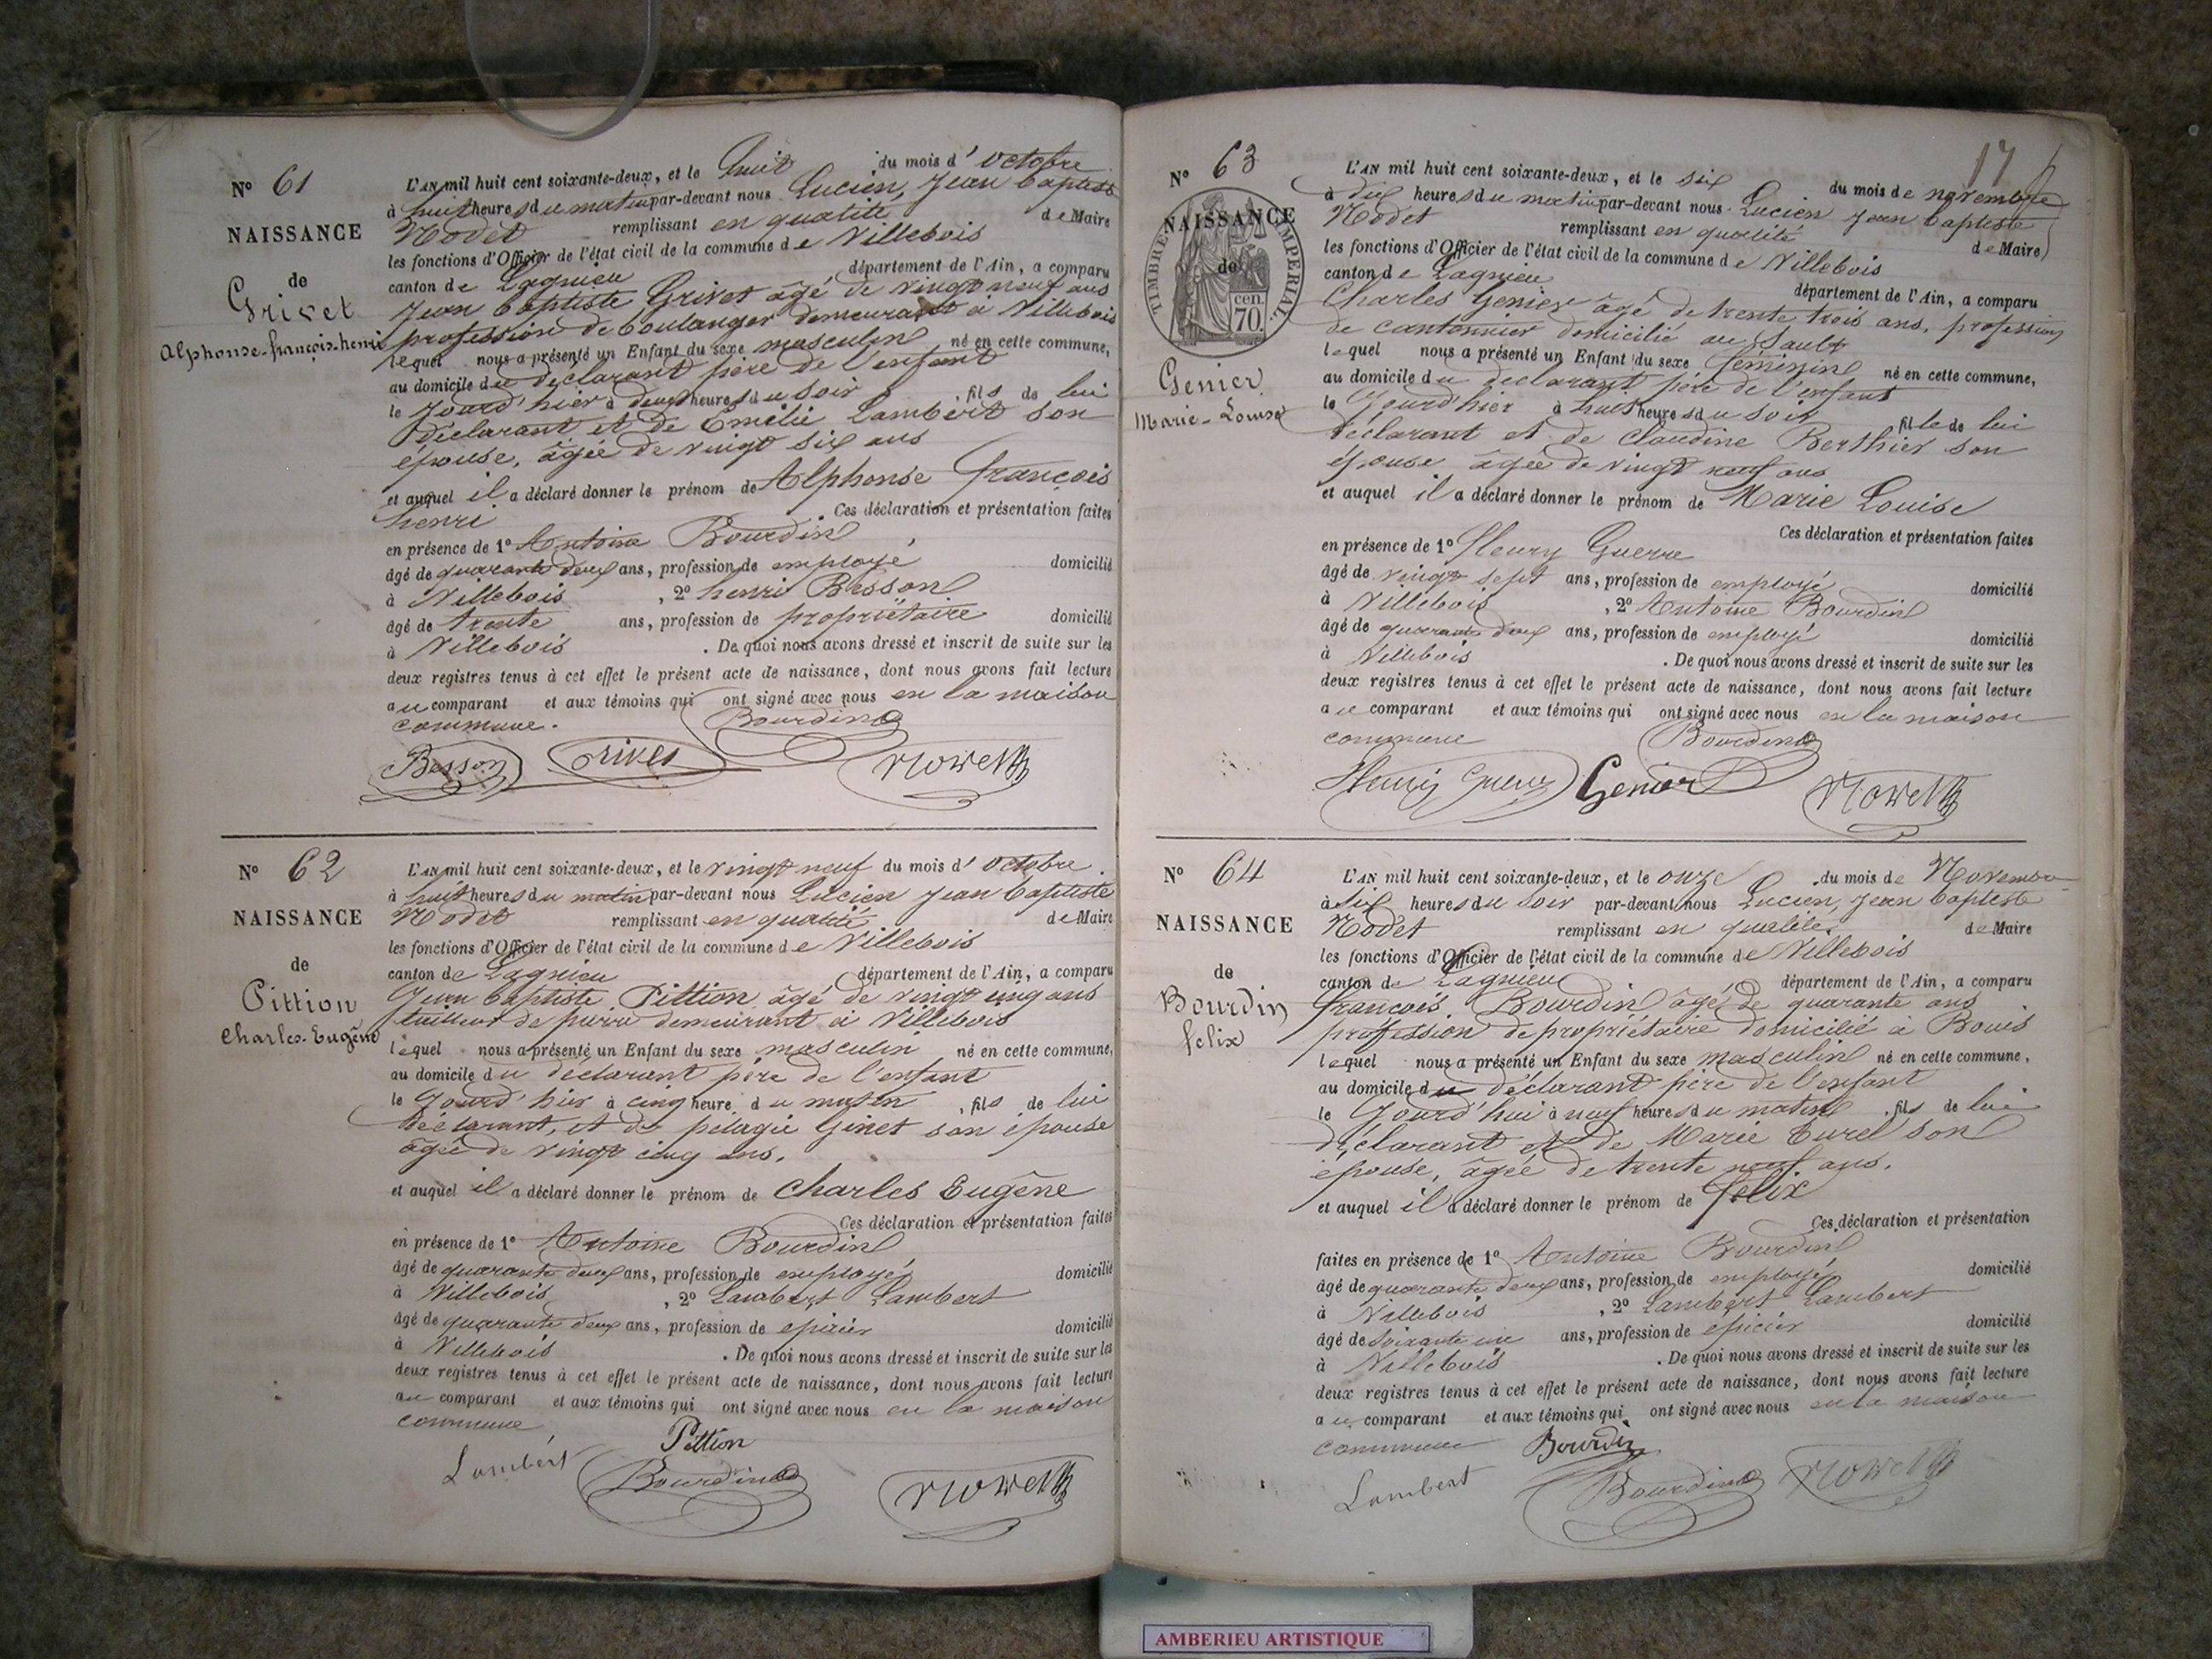 N° 61
NAISSANCE
de
Grivet
Alphonse-françois-henri
L'AN mil huit cent soixante-deux, et le huit du mois d'octobre
à huit heures du matin par-devant nous Lucien, Jean Baptiste
Nodet remplissant en qualité de Maire
les fonctions d'Officier de l'état civil de la commune de Villebois
canton de Lagnieu département de l'Ain, a comparu
Jean Baptiste Grivet âgé de vingt neuf ans
profession de boulanger demeurant à Villebois
lequel nous a présenté un Enfant du sexe masculin né en cette commune,
au domicile du déclarant père de l'enfant
le jourd'hier à deux heures du soir, fils de lui
déclarant et de Emélie Lambert son
épouse, âgée de vingt six ans
et auquel il a déclaré donner le prénom de Alphonse françois
henri. Ces déclaration et présentation faites
en présence de 1° Antoine Bourdin
âgé de quarante deux ans, profession de employé domicilié
à Villebois, 2° henri Besson
âgé de trente ans, profession de propriétaire domicilié
à Villebois. De quoi nous avons dressé et inscrit de suite sur les
deux registres tenus à cet effet le présent acte de naissance, dont nous avons fait lecture
au comparant et aux témoins qui ont signé avec nous en la maison
commune. Bourdin
Besson Grivet
N° 62
NAISSANCE
de
Pittion
Charles-Eugêne
L'AN mil huit cent soixante-deux, et le vingt neuf du mois d'octobre
à huit heures du matin par-devant nous Lucien Jean Baptiste
Nodet remplissant en qualité de Maire
les fonctions d'Officier de l'état civil de la commune de Villebois
canton de Lagnieu département de l'Ain, a comparu
Jean Baptiste Pittion âgé de vingt cinq ans
tailleur de pierre demeurant à Villebois
lequel nous a présenté un Enfant du sexe masculin né en cette commune,
au domicile du déclarant père de l'enfant
le jourd'hier à cinq heure du matin, fils de lui
déclarant, et de pelagie Ginet son épouse
âgée de vingt cinq ans.
et auquel il a déclaré donner le prénom de Charles Eugêne
Ces déclaration et présentation faites
en présence de 1° Antoine Bourdin
âgé de quarante deux ans, profession de employé domicilié
à Villebois, 2° Lambert Lambert
âgé de quarante deux ans, profession de epicier domicilié
à Villebois. De quoi nous avons dressé et inscrit de suite sur les
deux registres tenus à cet effet le présent acte de naissance, dont nous avons fait lecture
au comparant et aux témoins qui ont signé avec nous en la maison
commune Pittion
Lambert Bourdin
17
N° 63
NAISSANCE
de
TIMBRE IMPERIAL
70 cen.
Genier
Marie-Louise
L'AN mil huit cent soixante-deux, et le six du mois de novembre
à dix heures du matin par-devant nous Lucien Jean Baptiste
Nodet remplissant en qualité de Maire
les fonctions d'Officier de l'état civil de la commune de Villebois
canton de Lagnieu département de l'Ain, a comparu
Charles Genier âgé de trente trois ans, profession
de cantonnier domicilié au Sault
lequel nous a présenté un Enfant du sexe féminin né en cette commune,
au domicile du déclarant père de l'enfant
le jourd'hier à huit heures du soir fille de lui
déclarant et de Claudine Berthier son
épouse âgée de vingt neuf ans
et auquel il a déclaré donner le prénom de Marie Louise
Ces déclaration et présentation faites
en présence de 1° fleury Guerre
âgé de vingt sept ans, profession de employé domicilié
à Villebois, 2° Antoine Bourdin
âgé de quarante deux ans, profession de employé domicilié
à Villebois. De quoi nous avons dressé et inscrit de suite sur les
deux registres tenus à cet effet le présent acte de naissance, dont nous avons fait lecture
au comparant et aux témoins qui ont signé avec nous en la maison
commune Bourdin
Genier
N° 64
NAISSANCE
de
Bourdin
felix
L'AN mil huit cent soixante-deux, et le onze du mois de Novembre
à six heures du soir par-devant nous Lucien, Jean Baptiste
Nodet remplissant en qualité de Maire
les fonctions d'Officier de l'état civil de la commune de Villebois
canton de Lagnieu département de l'Ain, a comparu
françois Bourdin âgé de quarante ans
profession de propriétaire domicilié à Bouis
lequel nous a présenté un Enfant du sexe masculin né en cette commune,
au domicile du déclarant père de l'enfant
le jourd'hui à neuf heures du matin, fils de lui
déclarant et de Marie Curel son
épouse, âgée de trente neuf ans.
et auquel il a déclaré donner le prénom de felix
Ces déclaration et présentation
faites en présence de 1° Antoine Bourdin
âgé de quarante deux ans, profession de employé domicilié
à Villebois, 2° Lambert Lambert
âgé de soixante un ans, profession de epicier domicilié
à Villebois. De quoi nous avons dressé et inscrit de suite sur les
deux registres tenus à cet effet le présent acte de naissance, dont nous avons fait lecture
au comparant et aux témoins qui ont signé avec nous en la maison
commune Bourdin
Lambert Bourdin
AMBERIEU ARTISTIQUE